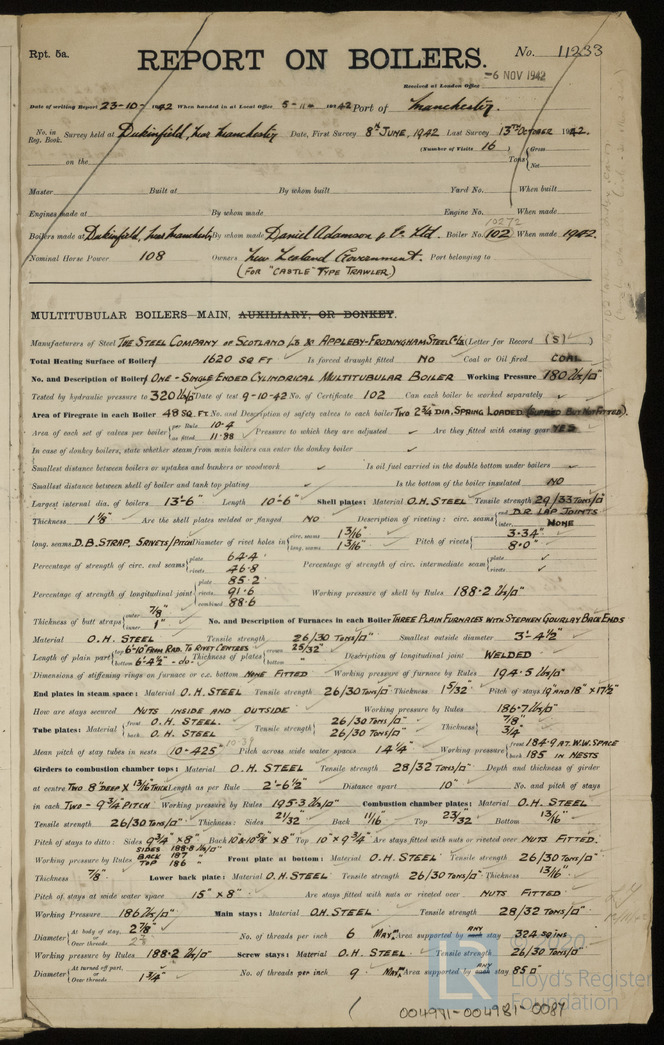 Rpt. 5a.
REPORT ON BOILERS.
No. 11233
Received at London Office -6 NOV 1942
Date of writing Report 23-10-1942 When handed in at Local Office 5-11-1942 Port of Manchester.
No. in Reg. Book. Survey held at Dukinfield, near Manchester Date, First Survey 8th JUNE, 1942 Last Survey 13TH OCTOBER 1942.
(Number of Visits 16)
on the Tons { Gross Net
Master Built at By whom built Yard No. When built
Engines made at By whom made Engine No. When made
10272
Boilers made at Dukinfield, near Manchester By whom made Daniel Adamson & Co. Ltd. Boiler No. 102 When made 1942.
Nominal Horse Power 108 Owners New Zealand Government. Port belonging to
(FOR "CASTLE" TYPE TRAWLER)
MULTITUBULAR BOILERS—MAIN, AUXILIARY, OR DONKEY.
Manufacturers of Steel THE STEEL COMPANY OF SCOTLAND LD & APPLEBY-FRODINGHAM STEEL Co LD (Letter for Record (S))
Total Heating Surface of Boiler 1620 SQ FT Is forced draught fitted NO Coal or Oil fired COAL
No. and Description of Boiler ONE - SINGLE ENDED CYLINDRICAL MULTITUBULAR BOILER Working Pressure 180 lbs/□"
Tested by hydraulic pressure to 320 lbs/□" Date of test 9-10-42 No. of Certificate 102 Can each boiler be worked separately ✓
Area of Firegrate in each Boiler 48 SQ. FT No. and Description of safety valves to each boiler TWO 2¾" DIA, SPRING LOADED (SUPPLIED BUT NOT FITTED).
Area of each set of valves per boiler { per Rule 10.4 as fitted 11.88 Pressure to which they are adjusted ✓ Are they fitted with easing gear YES
In case of donkey boilers, state whether steam from main boilers can enter the donkey boiler ✓
Smallest distance between boilers or uptakes and bunkers or woodwork ✓ Is oil fuel carried in the double bottom under boilers ✓
Smallest distance between shell of boiler and tank top plating ✓ Is the bottom of the boiler insulated NO
Largest internal dia. of boilers 13'-6" Length 10'-6" Shell plates: Material O.H. STEEL Tensile strength 29/33 TONS/□"
Thickness 1⅛" Are the shell plates welded or flanged NO Description of riveting: circ. seams { end D.R. LAP JOINTS inter. NONE
long. seams D.B. STRAP. 5 RIVETS/PITCH Diameter of rivet holes in { circ. seams 1 3/16" long. seams 1 3/16" Pitch of rivets { 3.34" 8.0"
Percentage of strength of circ. end seams { plate 64.4 rivets 46.8 Percentage of strength of circ. intermediate seam { plate ✓ rivets ✓
Percentage of strength of longitudinal joint { plate 85.2 rivets 91.6 combined 88.6 Working pressure of shell by Rules 188.2 lbs/□"
Thickness of butt straps { outer 7/8" inner 1" No. and Description of Furnaces in each Boiler THREE PLAIN FURNACES WITH STEPHEN GOURLAY BACK ENDS
Material O.H. STEEL Tensile strength 26/30 TONS/□" Smallest outside diameter 3'-4½"
Length of plain part { top 6'-10" FROM RAD. TO RIVET CENTRES bottom 6'-4½" - do - Thickness of plates { crown 25/32" bottom Description of longitudinal joint WELDED
Dimensions of stiffening rings on furnace or c.c. bottom NONE FITTED Working pressure of furnace by Rules 194.5 lbs/□"
End plates in steam space: Material O.H. STEEL Tensile strength 26/30 TONS/□" Thickness 1 5/32" Pitch of stays 19" AND 18" × 17½"
How are stays secured NUTS INSIDE AND OUTSIDE Working pressure by Rules 186.7 lbs/□"
Tube plates: Material { front O.H. STEEL. back O.H. STEEL Tensile strength { 26/30 TONS/□" 26/30 TONS/□" Thickness { 7/8" 3/4"
Mean pitch of stay tubes in nests 10.425" 10.39 Pitch across wide water spaces 14¼" Working pressure { front 184.9 AT. W.W. SPACE back 185 IN NESTS
Girders to combustion chamber tops: Material O.H. STEEL Tensile strength 28/32 TONS/□" Depth and thickness of girder
at centre TWO 8" DEEP × 13/16" THICK Length as per Rule 2'-6½" Distance apart 10" No. and pitch of stays
in each TWO - 9¾" PITCH Working pressure by Rules 195.3 lbs/□" Combustion chamber plates: Material O.H. STEEL
Tensile strength 26/30 TONS/□" Thickness: Sides 21/32" Back 11/16" Top 23/32" Bottom 13/16"
Pitch of stays to ditto: Sides 9¾" × 8" Back 10 & 10⅝" × 8" Top 10" × 9¾" Are stays fitted with nuts or riveted over NUTS FITTED.
Working pressure by Rules SIDES 188.8 lbs/□" BACK 187 " TOP 186 " Front plate at bottom: Material O.H. STEEL Tensile strength 26/30 TONS/□"
Thickness 7/8" Lower back plate: Material O.H. STEEL Tensile strength 26/30 TONS/□" Thickness 13/16"
Pitch of stays at wide water space 15" × 8" Are stays fitted with nuts or riveted over NUTS FITTED
Working Pressure 186 lbs/□" Main stays: Material O.H. STEEL Tensile strength 28/32 TONS/□"
Diameter { At body of stay, 2⅞" or Over threads No. of threads per inch 6 MAXM Area supported by each ANY stay 324 SQ INS
Working pressure by Rules 188.2 lbs/□" Screw stays: Material O.H. STEEL Tensile strength 26/30 TONS/□"
Diameter { At turned off part, or Over threads 1¾" No. of threads per inch 9 MAXM Area supported by each ANY stay 85 □"
LR
Lloyd's Register
Foundation
004971-004981-0089